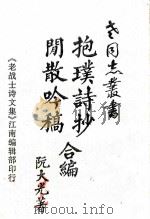 老同志叢書
抱璞詩抄
閒散吟稿
合編
阮大光著
《老战士诗文集》江南编辑部印行